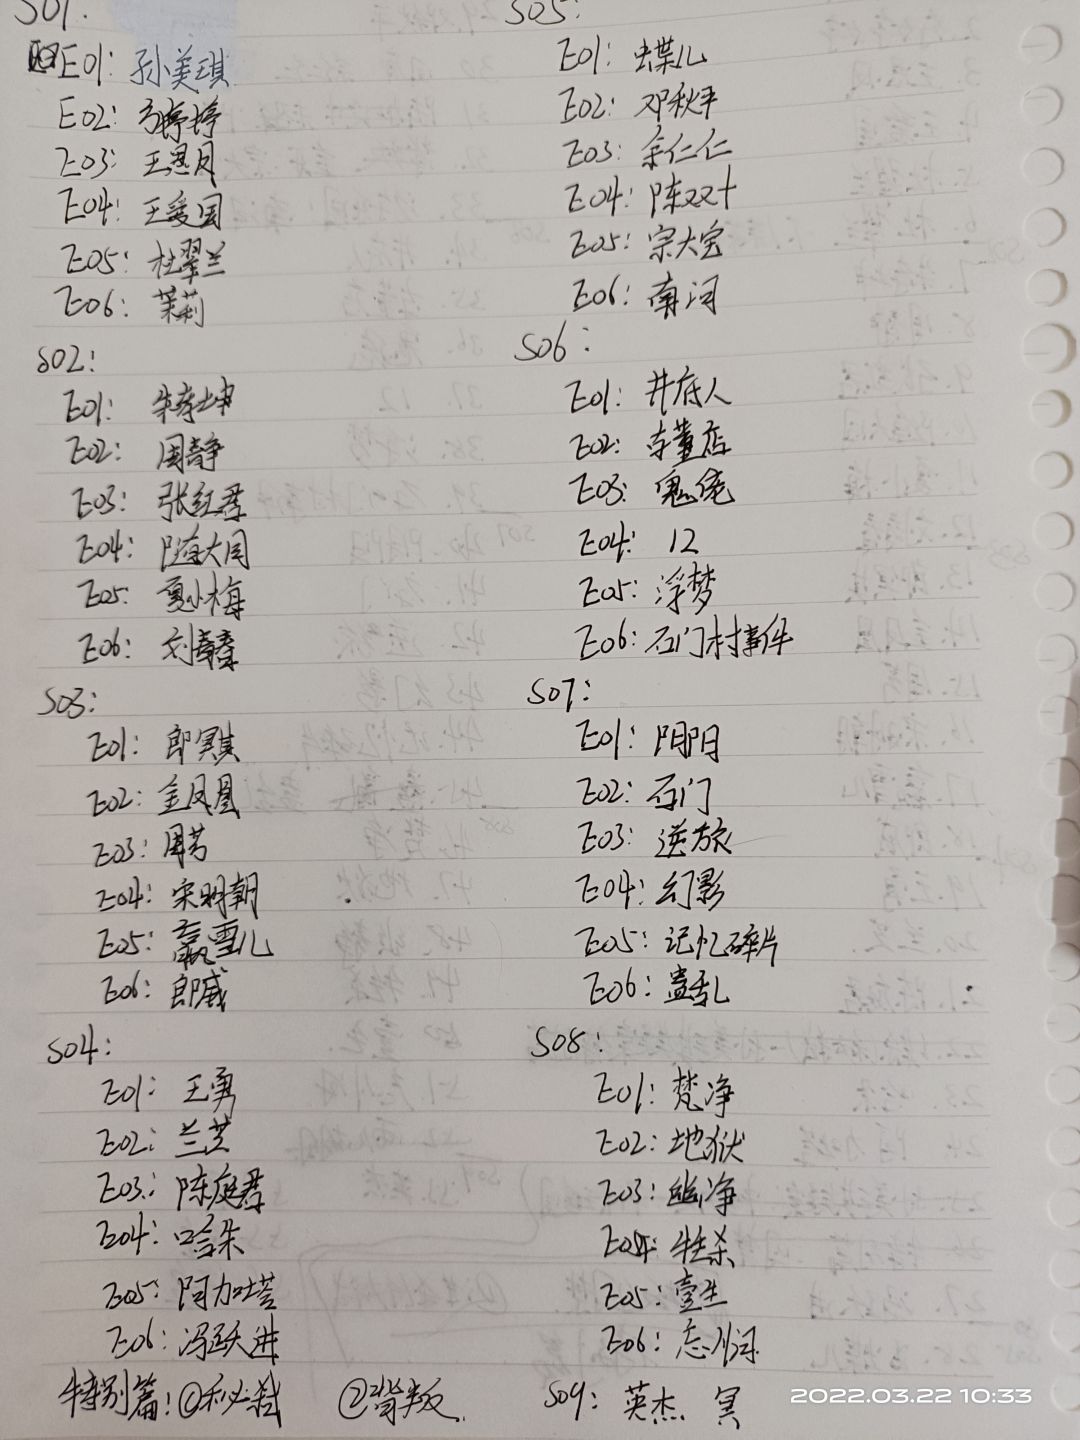 S01:
E01: 孙美琪
E02: 马婷婷
E03: 王思月
E04: 王爱国
E05: 杜翠兰
E06: 茉莉
S02:
E01: 朱孝坤
E02: 周静
E03: 张红孝
E04: 隋大同
E05: 夏小梅
E06: 刘青春
S03:
E01: 郎冥棋
E02: 金凤凰
E03: 周芳
E04: 宋明朝
E05: 嬴雪儿
E06: 郎威
S04:
E01: 王勇
E02: 兰芝
E03: 陈庭孝
E04: 哈朱
E05: 阿加吐塔
E06: 冯跃进
特别篇: ①秋秘弑 ②背叛
S05:
E01: 蝶儿
E02: 邓秋平
E03: 余仁仁
E04: 陈双十
E05: 宗大宝
E06: 南河
S06:
E01: 井底人
E02: 古董店
E03: 鬼侥
E04: 12
E05: 浮梦
E06: 石门村事件
S07:
E01: 阴阳
E02: 石门
E03: 逆旅
E04: 幻影
E05: 记忆碎片
E06: 蛊乱
S08:
E01: 梵净
E02: 地狱
E03: 幽净
E04: 牲杀
E05: 壹生
E06: 忘川河
S09: 英杰 冥
2022.03.22 10:33